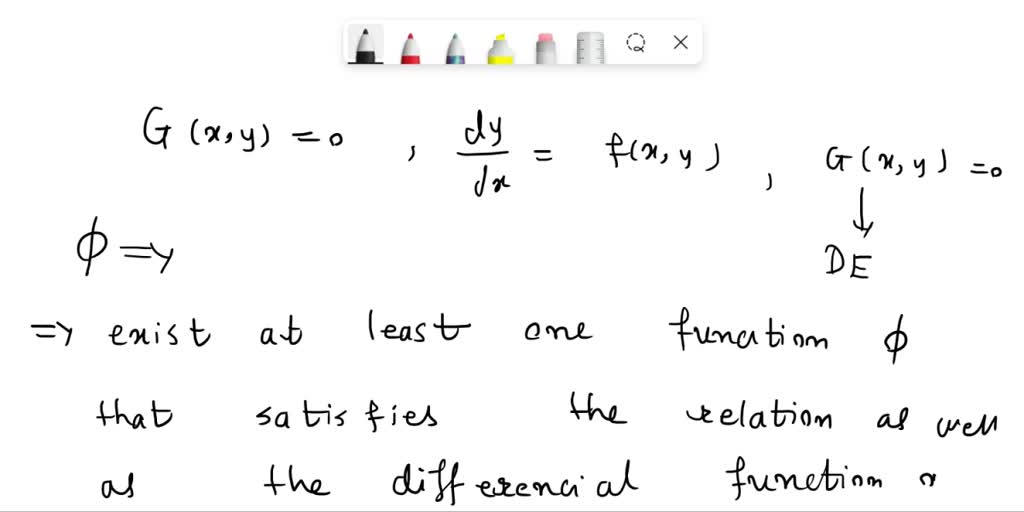 G(x,y) = 0 , dy/dx = f(x,y) , G(x,y) = 0
↓
ϕ ⇒ DE
⇒ exist at least one function ϕ
that satisfies the relation as well
as the differencial function